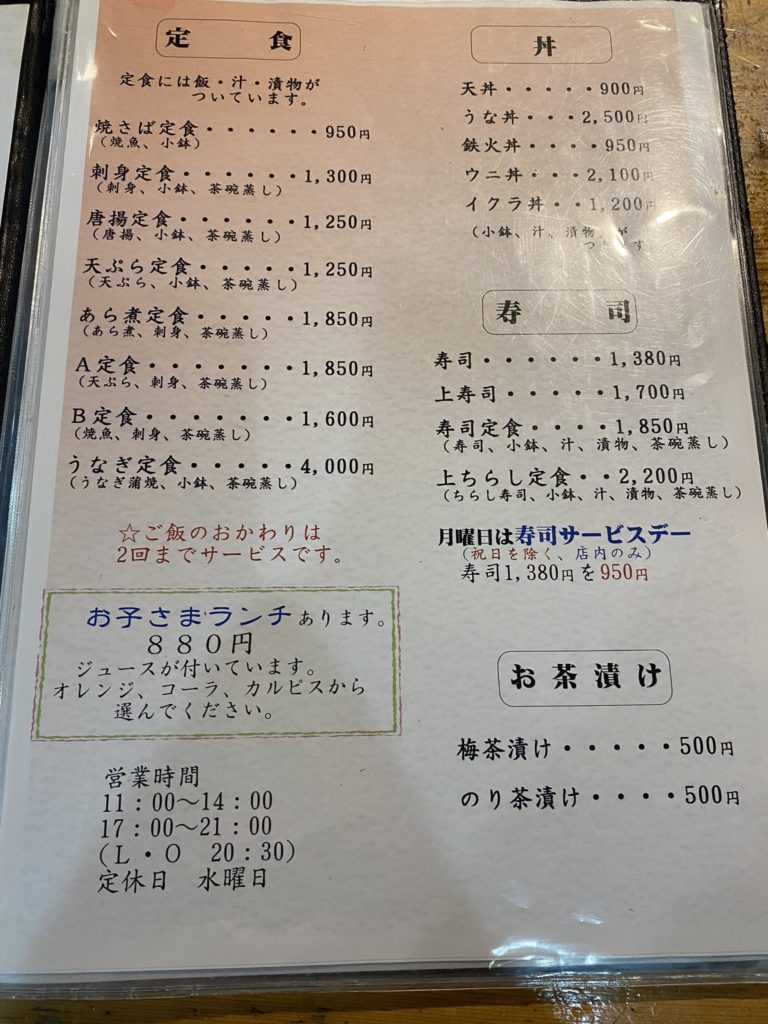 定食
定食には飯・汁・漬物が
ついています。
焼さば定食・・・・・・950円
(焼魚、小鉢)
刺身定食・・・・・・1,300円
(刺身、小鉢、茶碗蒸し)
唐揚定食・・・・・・1,250円
(唐揚、小鉢、茶碗蒸し)
天ぷら定食・・・・・1,250円
(天ぷら、小鉢、茶碗蒸し)
あら煮定食・・・・・1,850円
(あら煮、刺身、茶碗蒸し)
A定食・・・・・・・1,850円
(天ぷら、刺身、茶碗蒸し)
B定食・・・・・・・1,600円
(焼魚、刺身、茶碗蒸し)
うなぎ定食・・・・・4,000円
(うなぎ蒲焼、小鉢、茶碗蒸し)
☆ご飯のおかわりは
2回までサービスです。
お子さまランチあります。
880円
ジュースが付いています。
オレンジ、コーラ、カルピスから
選んでください。
営業時間
11:00～14:00
17:00～21:00
(L・O 20:30)
定休日 水曜日
丼
天丼・・・・・900円
うな丼・・・2,500円
鉄火丼・・・・950円
ウニ丼・・・2,100円
イクラ丼・・1,200円
(小鉢、汁、漬物が
つきます)
寿司
寿司・・・・・・1,380円
上寿司・・・・・1,700円
寿司定食・・・・1,850円
(寿司、小鉢、汁、漬物、茶碗蒸し)
上ちらし定食・・2,200円
(ちらし寿司、小鉢、汁、漬物、茶碗蒸し)
月曜日は寿司サービスデー
(祝日を除く、店内のみ)
寿司1,380円を950円
お茶漬け
梅茶漬け・・・・・500円
のり茶漬け・・・・500円